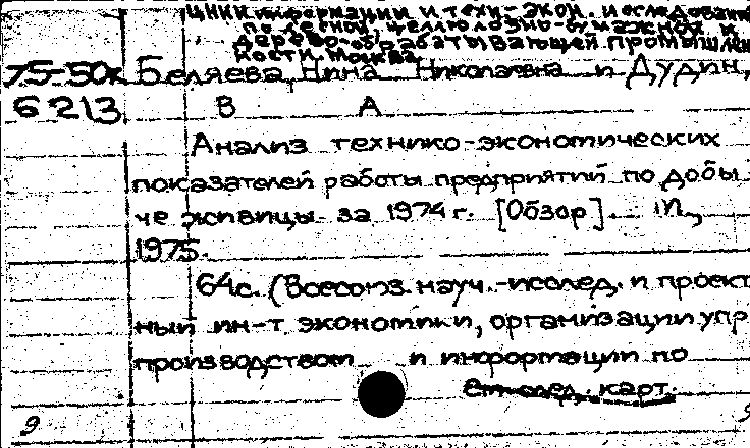 ЦНИИ информации и техн.-экон. исследований
по лесной, целлюлозно-бумажной и
деревообрабатывающей промышлен
ности. Москва.
75-50к Беляева, Нина Николаевна и Дудин,
6213 В А
Анализ технико-экономических
показателей работы предприятий по добы
че живицы за 1974 г. [Обзор]. М.,
1975.
64 с. (Всесоюз. науч.-исслед. и проект
ный ин-т экономики, организации упр
производством и информации по
см. след. карт.
9